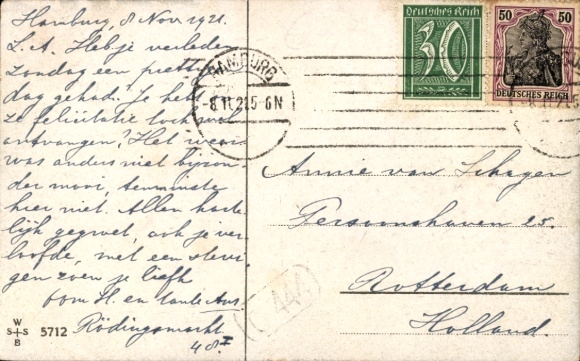 Hamburg, 8 Nov 1921.
L. A. Heb je verleden
Zondag een prettige
dag gehad? Je heb
ze felicitatie toch wel
ontvangen? Het weer
was anders niet bijzon-
der mooi, tenminste
hier niet. Allen harte-
lijk gegroet, ook je ver-
loofde, met een stevi-
gen zoen je liefh
oom H. en tante Ans
Rödingsmarkt
48 I
W
S S
B
5712
HAMBURG
-8.11.21.5-6N
Deutsches Reich
30
50 50
DEUTSCHES REICH
Annie van Schagen
Persoonshaven 25.
Rotterdam
Holland.